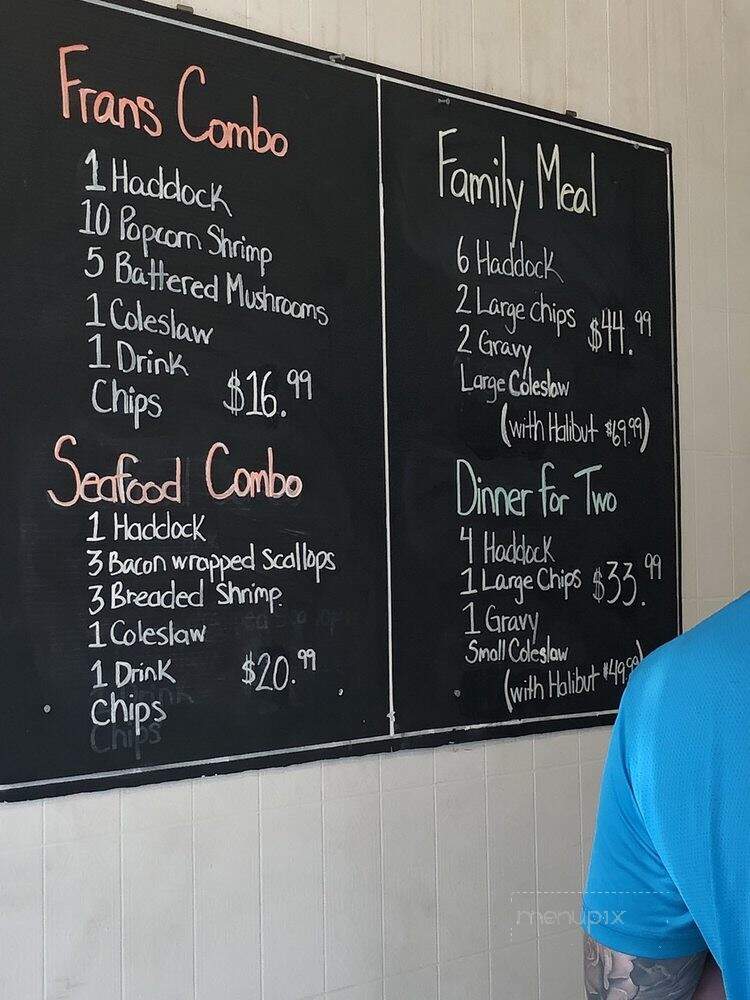 Frans Combo
1 Haddock
10 Popcorn Shrimp
5 Battered Mushrooms
1 Coleslaw
1 Drink
Chips $16.99
Seafood Combo
1 Haddock
3 Bacon wrapped Scallops
3 Breaded Shrimp
1 Coleslaw
1 Drink $20.99
Chips
Chips
Family Meal
6 Haddock
2 Large chips $44.99
2 Gravy
Large Coleslaw
(with Halibut $69.99)
Dinner for Two
4 Haddock
1 Large Chips $33.99
1 Gravy
Small Coleslaw
(with Halibut $49.99)
menupix